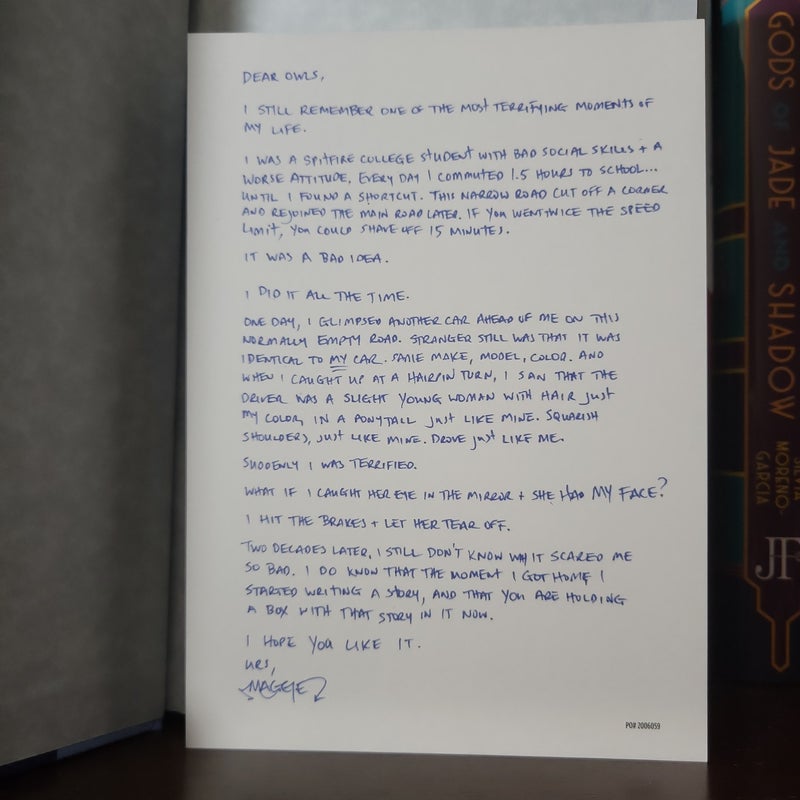 DEAR OWLS,
I STILL REMEMBER ONE OF THE MOST TERRIFYING MOMENTS OF
MY LIFE.
I WAS A SPITFIRE COLLEGE STUDENT WITH BAD SOCIAL SKILLS + A
WORSE ATTITUDE. EVERY DAY I COMMUTED 1.5 HOURS TO SCHOOL...
UNTIL I FOUND A SHORTCUT. THIS NARROW ROAD CUT OFF A CORNER
AND REJOINED THE MAIN ROAD LATER. IF YOU WENT TWICE THE SPEED
LIMIT, YOU COULD SHAVE OFF 15 MINUTES.
IT WAS A BAD IDEA.
I DID IT ALL THE TIME.
ONE DAY, I GLIMPSED ANOTHER CAR AHEAD OF ME ON THIS
NORMALLY EMPTY ROAD. STRANGER STILL WAS THAT IT WAS
IDENTICAL TO MY CAR. SAME MAKE, MODEL, COLOR. AND
WHEN I CAUGHT UP AT A HAIRPIN TURN, I SAW THAT THE
DRIVER WAS A SLIGHT YOUNG WOMAN WITH HAIR JUST
MY COLOR, IN A PONYTAIL JUST LIKE MINE. SQUARISH
SHOULDERS, JUST LIKE MINE. DROVE JUST LIKE ME.
SUDDENLY I WAS TERRIFIED.
WHAT IF I CAUGHT HER EYE IN THE MIRROR + SHE HAD MY FACE?
I HIT THE BRAKES + LET HER TEAR OFF.
TWO DECADES LATER, I STILL DON'T KNOW WHY IT SCARED ME
SO BAD. I DO KNOW THAT THE MOMENT I GOT HOME I
STARTED WRITING A STORY, AND THAT YOU ARE HOLDING
A BOX WITH THAT STORY IN IT NOW.
I HOPE YOU LIKE IT.
URS,
MAGGIE
PO# 2006059
GODS OF JADE AND SHADOW
SILVIA
MORENO-
GARCIA
JF